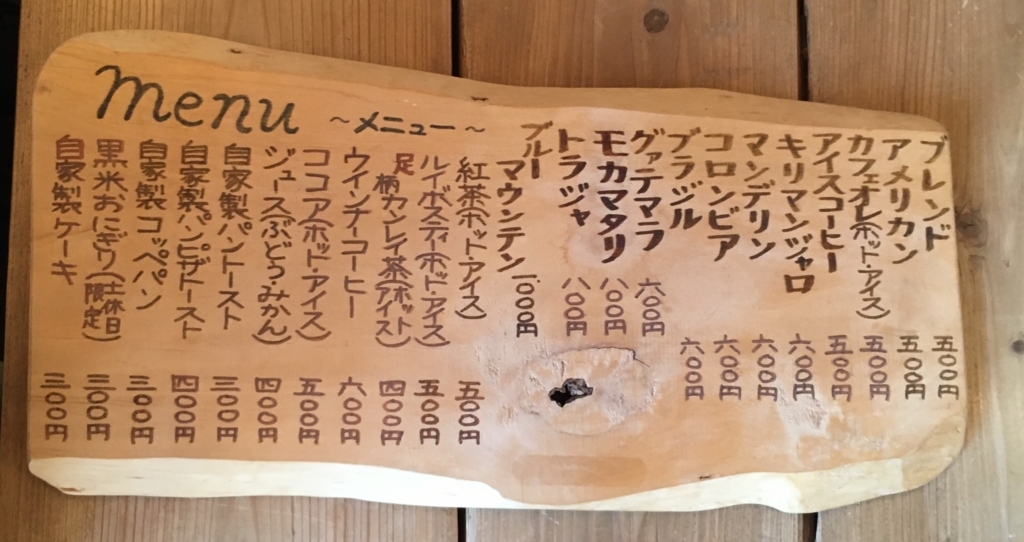 menu ～メニュー～
ブレンド 五〇〇円
アメリカン 五〇〇円
カフェオレ(ホット・アイス) 五〇〇円
アイスコーヒー 五〇〇円
キリマンジャロ 六〇〇円
マンデリン 六〇〇円
コロンビア 六〇〇円
ブラジル 六〇〇円
グァテマラ 六〇〇円
モカマタリ 八〇〇円
トラジャ 八〇〇円
ブルー
マウンテン 一、〇〇〇円
紅茶(ホット・アイス) 五〇〇円
ルイボスティ(ホット・アイス) 五〇〇円
足柄カンレイ茶(ホット)(アイス) 四〇〇円
ウインナーコーヒー 六〇〇円
ココア(ホット・アイス) 五〇〇円
ジュース(ぶどう・みかん) 四〇〇円
自家製パントースト 三〇〇円
自家製パンピザトースト 四〇〇円
自家製コッペパン 三〇〇円
黒米おにぎり(土休日限定) 三〇〇円
自家製ケーキ 三〇〇円